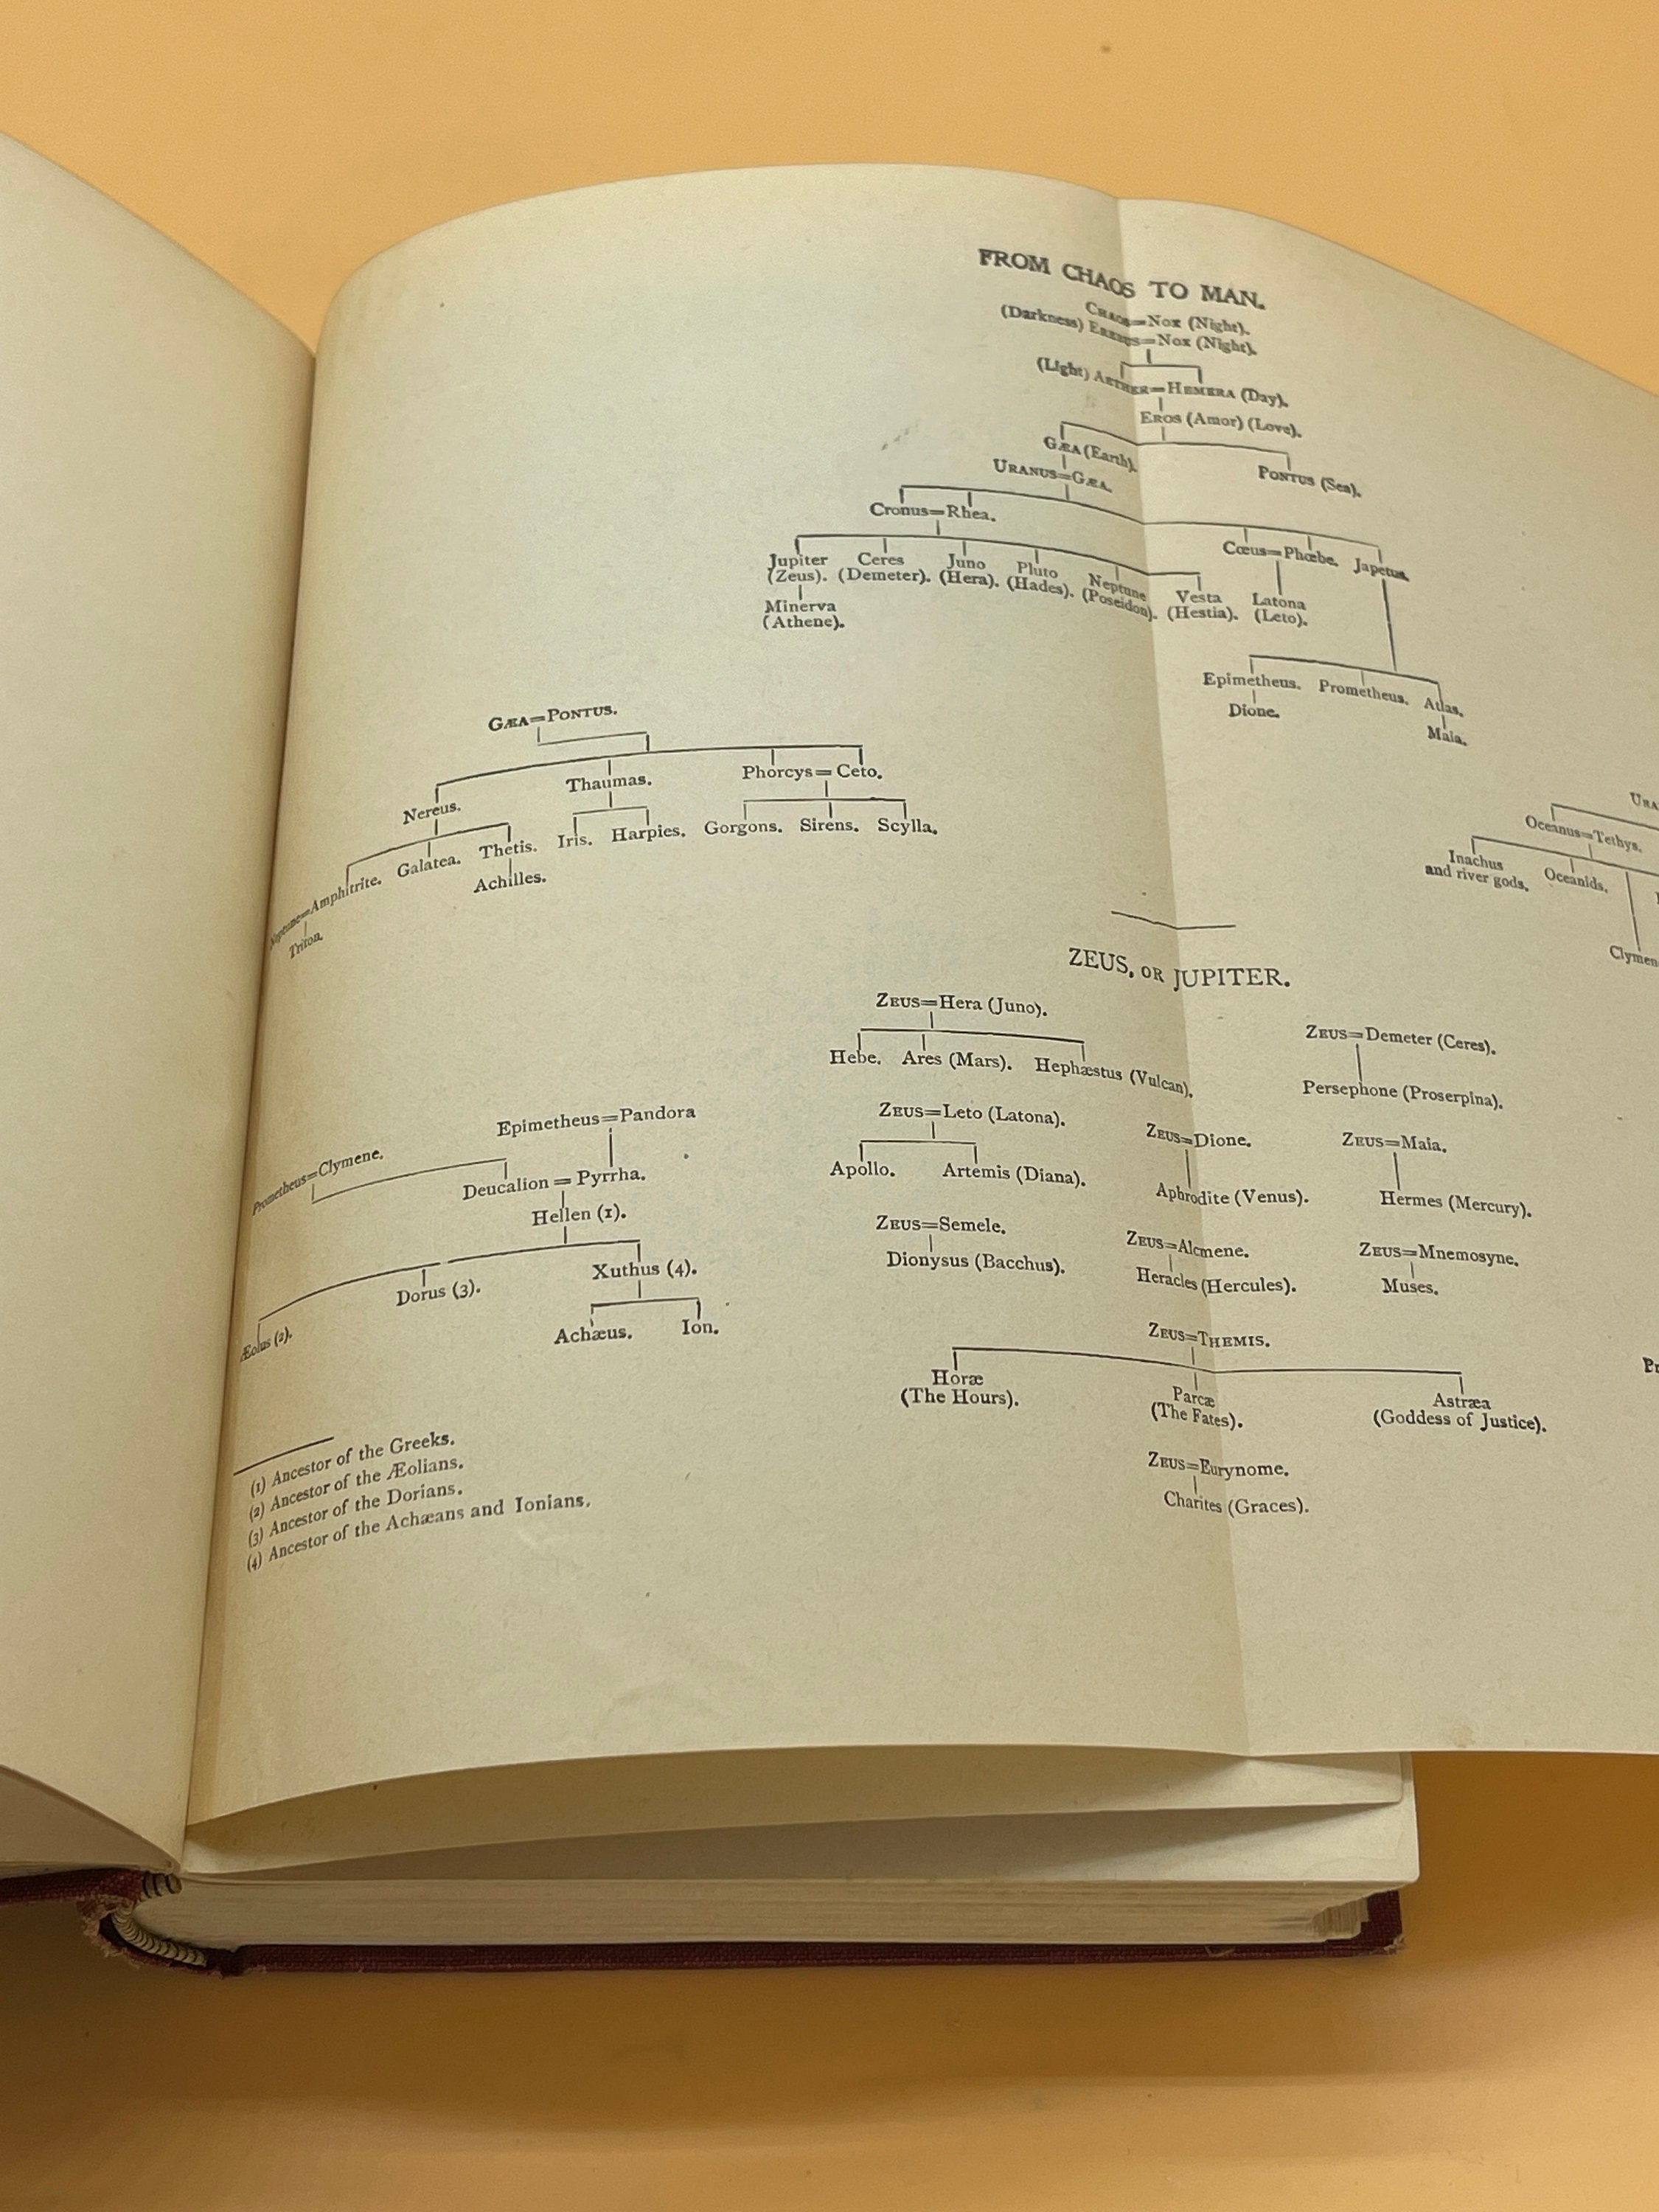 FROM CHAOS TO MAN.
CHAOS=NOX (Night).
(Darkness) EREBUS=NOX (Night).
(Light) AETHER=HEMERA (Day).
EROS (Amor) (Love).
GÆA (Earth). PONTUS (Sea).
URANUS=GÆA.
Cronus=Rhea. Cœus=Phœbe. Japetus.
Jupiter Ceres Juno Pluto Neptune Vesta Latona
(Zeus). (Demeter). (Hera). (Hades). (Poseidon). (Hestia). (Leto).
Minerva
(Athene).
Epimetheus. Prometheus. Atlas.
Dione. Maia.
GÆA=PONTUS.
Nereus. Thaumas. Phorcys=Ceto.
Neptune=Amphitrite. Galatea. Thetis. Iris. Harpies. Gorgons. Sirens. Scylla.
Triton. Achilles.
Oceanus=Tethys.
Inachus
and river gods. Oceanids.
ZEUS, OR JUPITER.
ZEUS=Hera (Juno). ZEUS=Demeter (Ceres).
Hebe. Ares (Mars). Hephæstus (Vulcan). Persephone (Proserpina).
ZEUS=Leto (Latona). ZEUS=Dione. ZEUS=Maia.
Apollo. Artemis (Diana). Aphrodite (Venus). Hermes (Mercury).
ZEUS=Semele. ZEUS=Alcmene. ZEUS=Mnemosyne.
Dionysus (Bacchus). Heracles (Hercules). Muses.
ZEUS=THEMIS.
Horæ Parcæ Astræa
(The Hours). (The Fates). (Goddess of Justice).
ZEUS=Eurynome.
Charites (Graces).
Epimetheus=Pandora
Prometheus=Clymene.
Deucalion=Pyrrha.
Hellen (1).
Æolus (2). Dorus (3). Xuthus (4).
Achæus. Ion.
(1) Ancestor of the Greeks.
(2) Ancestor of the Æolians.
(3) Ancestor of the Dorians.
(4) Ancestor of the Achæans and Ionians.